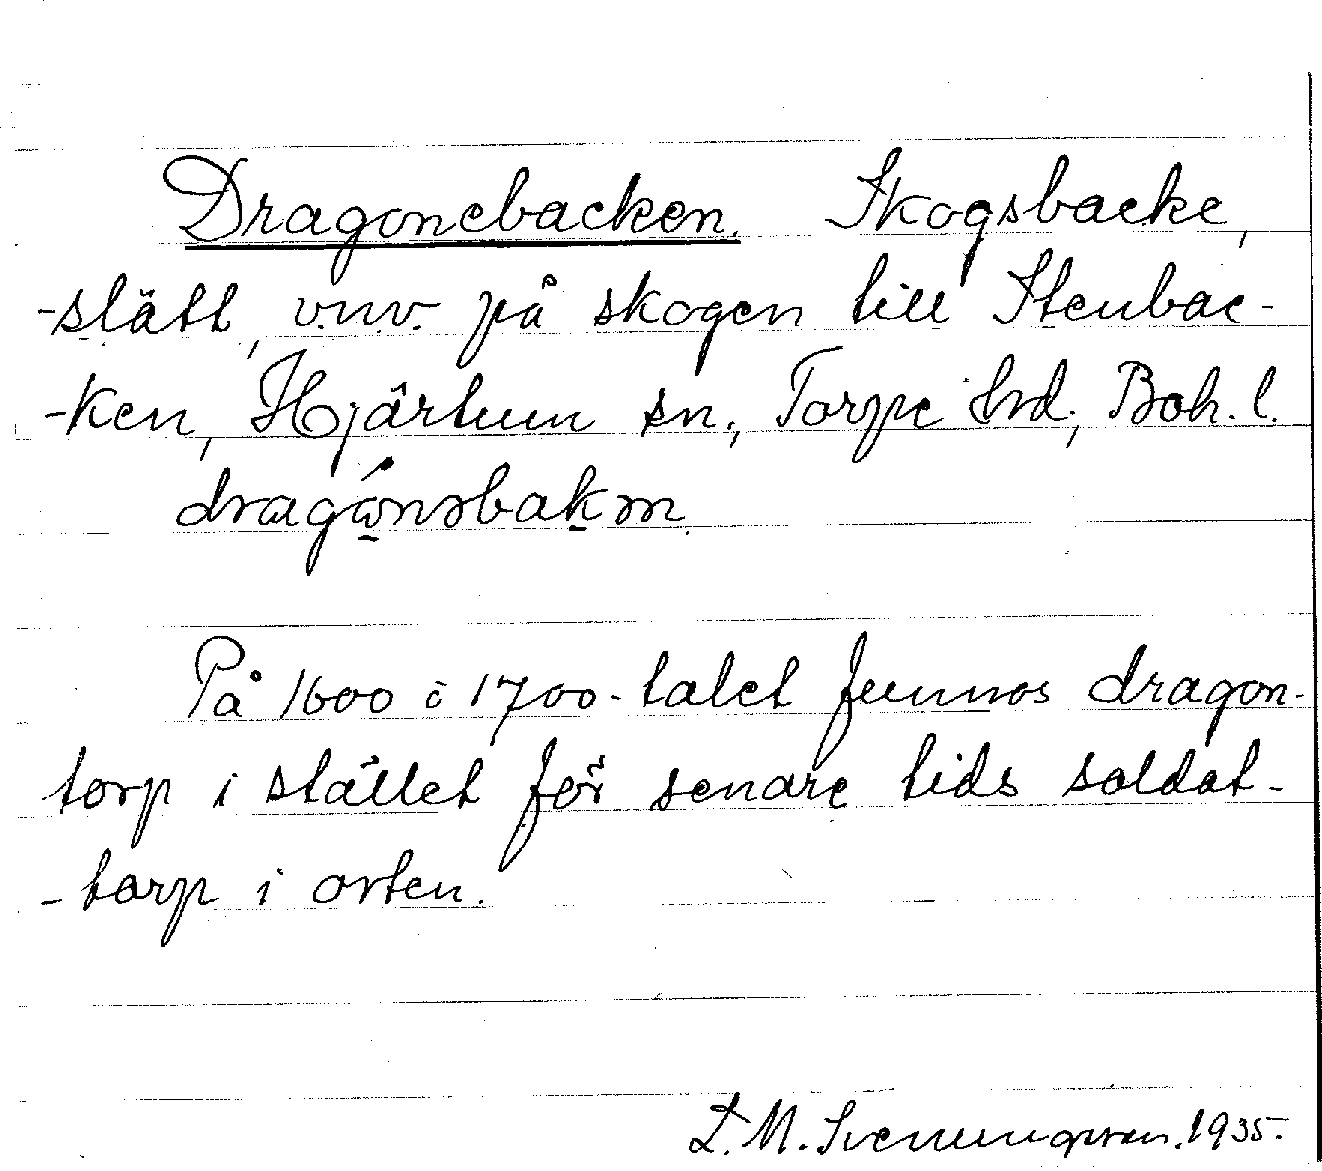 Dragonebacken. Skogsbacke,
-slätt, v.n.v. på skogen till Stenbac-
-ken, Hjärtum sn., Torpe hd., Boh. l.
dragώ̱nəbaḵən.
På 1600 i 1700-talet funnos dragon-
torp i stället för senare tids soldat-
-torp i orten.
L. M. Svenungsson. 1935.